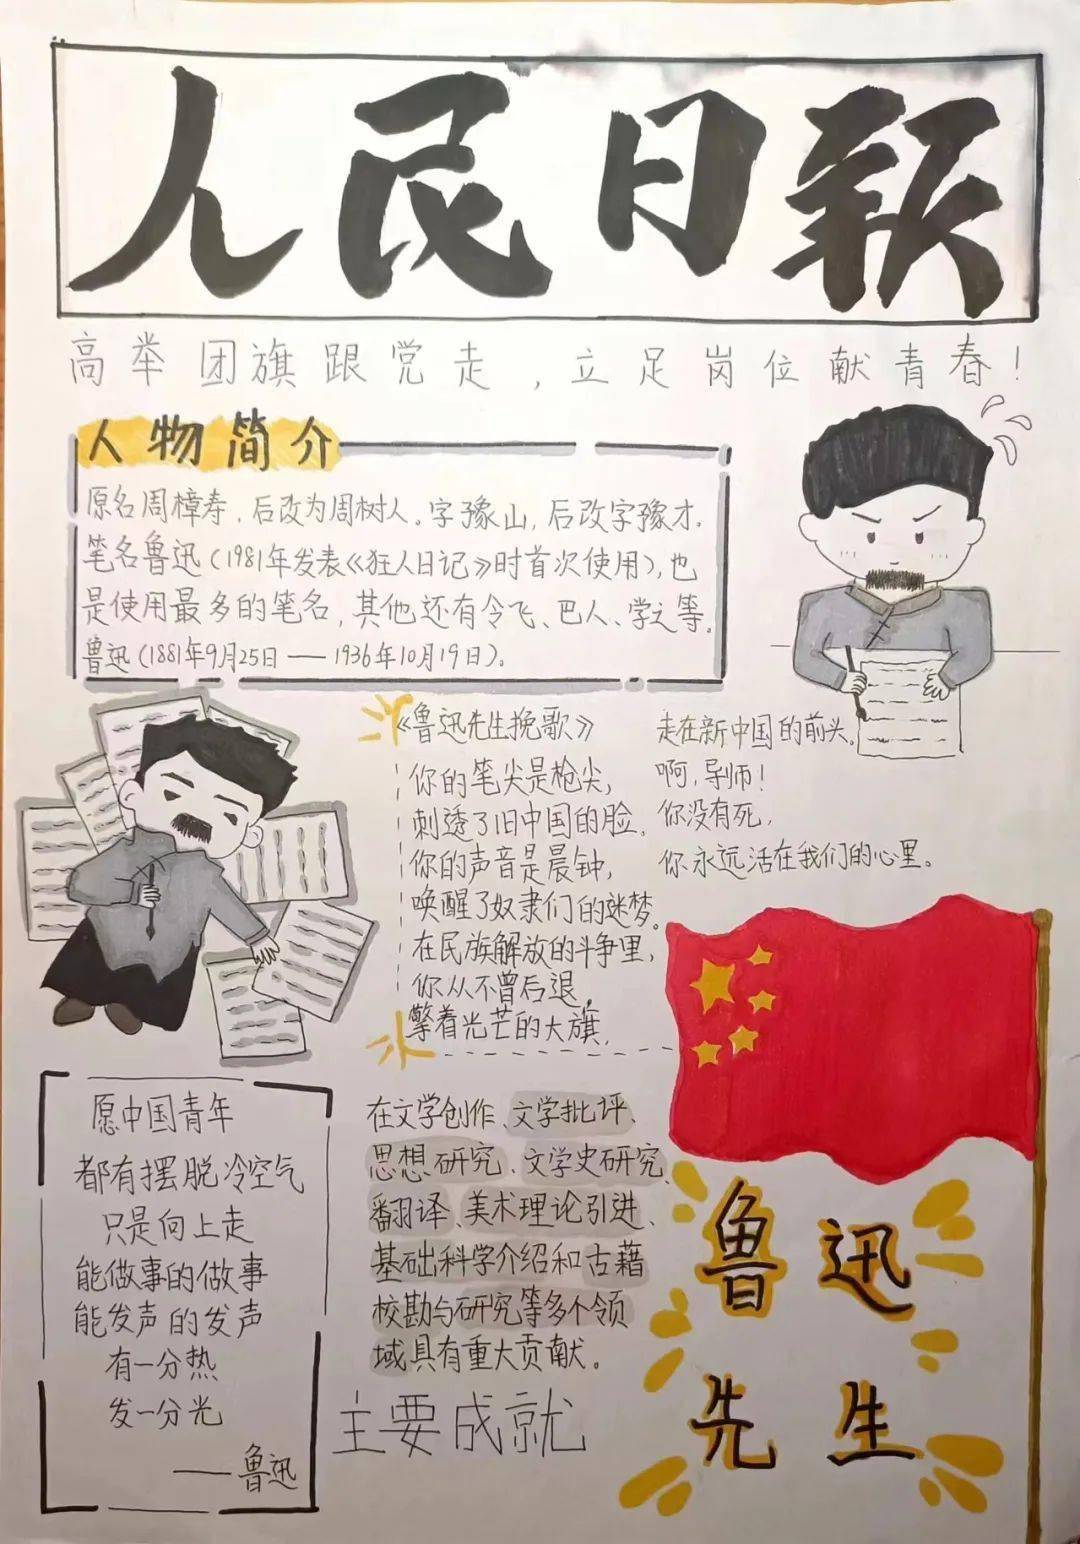 人民日报
高举团旗跟党走，立足岗位献青春！
人物简介
原名周樟寿，后改为周树人。字豫山，后改字豫才。
笔名鲁迅（1981年发表《狂人日记》时首次使用），也
是使用最多的笔名，其他还有令飞、巴人、学之等。
鲁迅（1881年9月25日——1936年10月19日）。
《鲁迅先生挽歌》
你的笔尖是枪尖，
刺透了旧中国的脸。
你的声音是晨钟，
唤醒了奴隶们的迷梦。
在民族解放的斗争里，
你从不曾后退，
擎着光芒的大旗，
走在新中国的前头。
啊，导师！
你没有死，
你永远活在我们的心里。
愿中国青年
都有摆脱冷空气
只是向上走
能做事的做事
能发声的发声
有一分热
发一分光
——鲁迅
在文学创作、文学批评、
思想研究、文学史研究、
翻译、美术理论引进、
基础科学介绍和古藉
校勘与研究等多个领
域具有重大贡献。
主要成就
鲁迅
先生